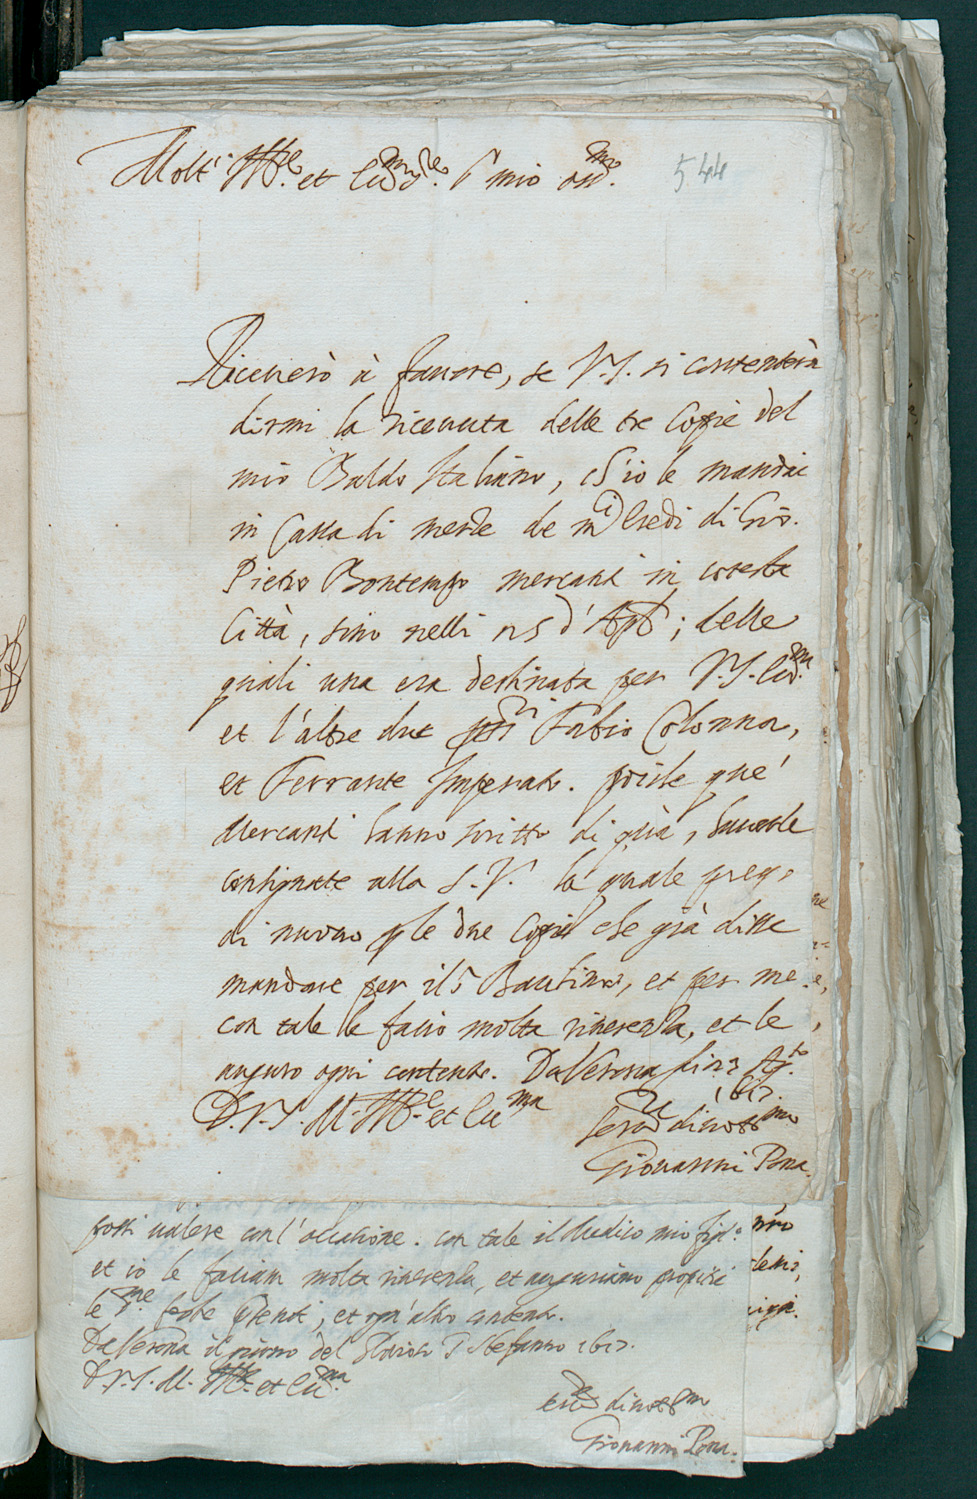 Molt' Ill.re et Ecc.mo S.r mio oss.mo
544
Riceverò à favore, se V.S. si contenterà
dirmi la ricevuta delle tre Copie del
mio Baldo Italiano, ch'io le mandai
in Cassa di merce de m.ci heredi di Gio.
Pietro Bontempo mercanti in cotesta
Città, sino nelli 15 d'Aple; delle
quali una era destinata per V.S. Ecc.ma
et l'altre due Fabio Colonna,
et Ferrante Imperato. poiche que'
Mercanti hanno scritto di quà, haverle
consignate alla S.V. la quale prego
di nuovo p le due Copie che già disse
mandare per il S Bauhino, et per me
con tale le facio molta riverenza, et le
auguro ogni contento. Da Verona li Ag.to
1617.
D.V.S. M. Ill.re et Ecc.ma
Ser.re divotiss.mo
Giovanni Pona
possi valere con l'occasione. con tale il Medico mio figl.o
et io le faciam molta riverenza, et auguriamo propitie
le S.me feste p̃senti, et ogn'altro contento.
Da Verona il giorno del Glorioso S Steffanno 1617.
D.V.S. M. Ill.re et Ecc.ma
divotiss.mo
Giovanni Pona.